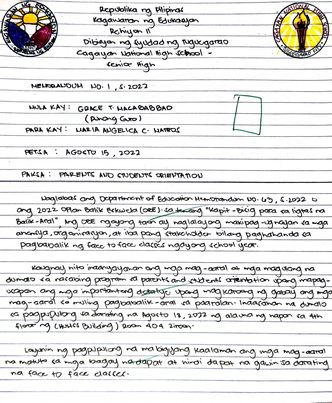 Republika ng Pilipinas
Kagawaran ng Edukasyon
Rehiyon II
Dibisyon ng Syudad ng Tuguegarao
Cagayan National High School -
Senior High
MEMORANDUM NO. 1, S. 2022
MULA KAY: GRACE T. MACABABBAD
(Punong Guro)
PARA KAY: MARIA ANGELICA C. MATEOS
PETSA: AGOSTO 15, 2022
PAKSA: PARENTS AND STUDENTS ORIENTATION
Naglabas ang Department of Education Memorandum No. 63, s. 2022 o
ang 2022 Oplan Balik Eskwela (OBE) sa temang "Kapit-Bisig para sa ligtas na
Balik-Aral" Ang OBE ngayong taon ay naglalayong makipag-ugnayan sa mga
ahensiya, organisasyon, at iba pang stakeholder bilang paghahanda sa
pagbabalik ng face to face classes ngayong school year.
Kaugnay nito inaanyayahan ang mga mag-aaral at mga magulang na
dumalo sa nasabing program sa parents and students orientation upang mapag-
usapan ang mga importanteng detalye upang magkaroon ng gabay ang mga
mag-aaral sa muling pagbabalik-aral sa paaralan. Inaasahan na dumalo
sa pagpupulong sa darating na Agosto 18, 2022 ng alauna ng hapon sa 4th
floor ng Building) Room 404
Layunin ng pagpupulong na mabigyang kaalaman ang mga mag-aaral
na matuto sa mga bagay na dapat at hindi dapat na gawin sa darating
na face to face classes.